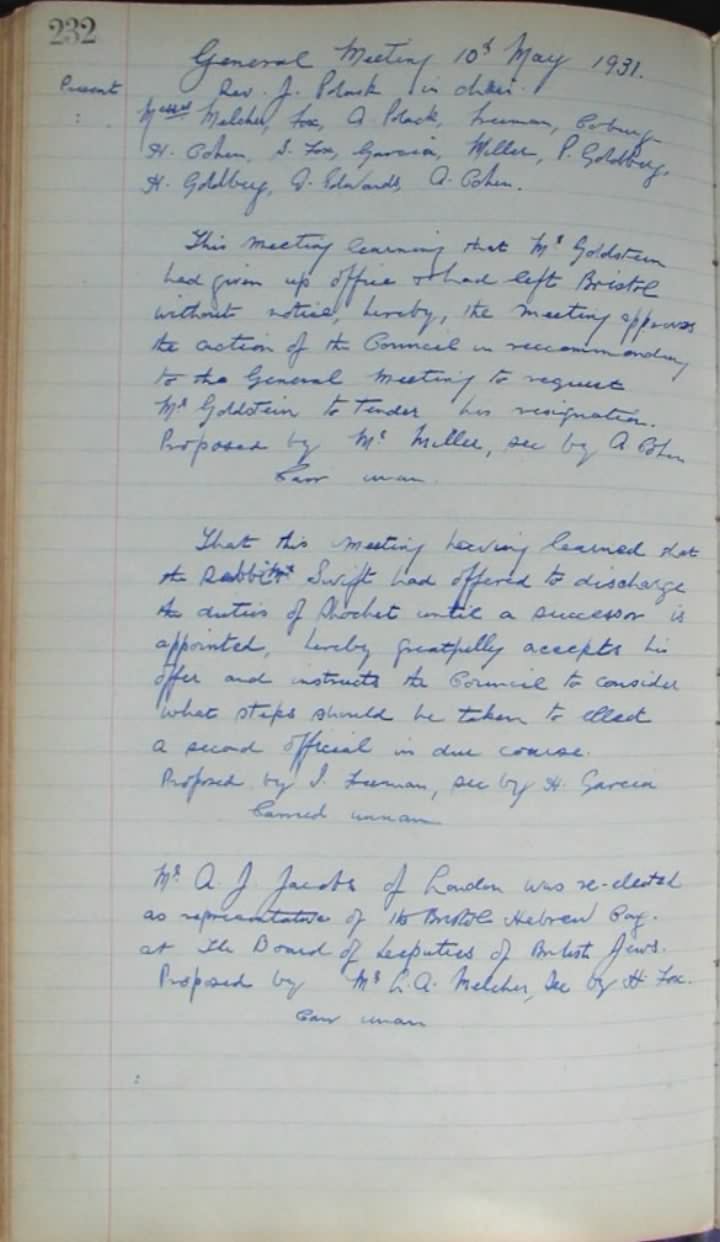 232
General Meeting 10th May 1931.
Present Rev. J. Polack in chair.
: Messrs Melcher, Fox, A. Polack, Freeman, Coburg
H. Cohen, S. Fox, Garcia, Miller, P. Goldberg,
H. Goldberg, D. Edwards, A. Cohen.
This meeting learning that Mr Goldstein
had given up office & had left Bristol
without notice, hereby, the meeting approves
the action of the Council in reccommending
to the General Meeting to request
Mr Goldstein to tender his resignation.
Proposed by Mr Miller, sec by A Cohen
Carr unan.
That this meeting having learned that
the Swift had offered to discharge
the duties of Shochet until a successor is
appointed, hereby greatfully accepts his
offer and instructs the Council to consider
what steps should be taken to elect
a second official in due course.
Proposed by I. Freeman, sec by H. Garcia
Carried unnam
Mr A. J. Jacobs of London was re-elected
as representative of the Bristol Hebrew Cog.
at the Board of Deputies of British Jews.
Proposed by Mr L. A. Melcher, sec by H. Fox.
Carr unan
: